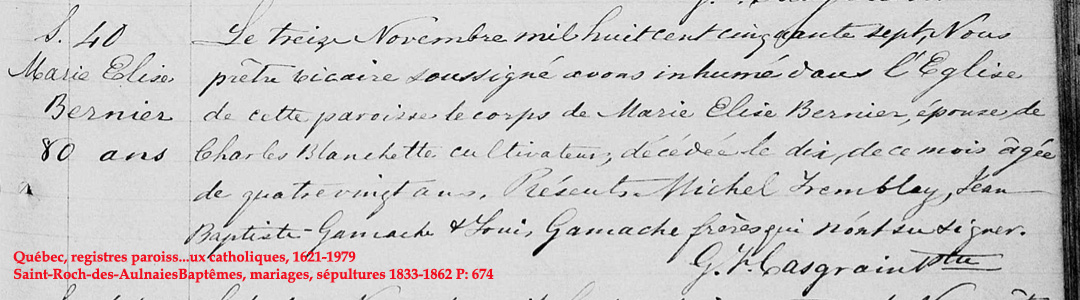 S. 40
Marie Elise
Bernier
80 ans
Le treize Novembre mil huit cent cinquante sept, Nous
prêtre vicaire soussigné avons inhumé dans l'Eglise
de cette paroisse le corps de Marie Elise Bernier, épouse de
Charles Blanchette cultivateur, décédée le dix, de ce mois âgée
de quatre vingt ans. Présents Michel Tremblay, Jean
Baptiste Gamache & Louis Gamache frères qui n'ont su signer.
Casgrain Ptre
Québec, registres paroiss...ux catholiques, 1621-1979
Saint-Roch-des-AulnaiesBaptêmes, mariages, sépultures 1833-1862 P: 674